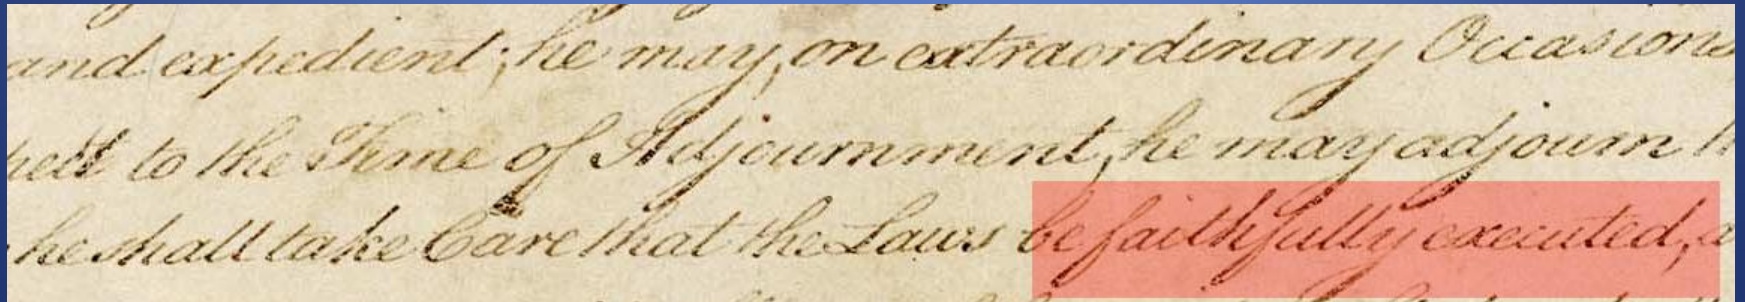 and expedient; he may, on extraordinary Occasions
to the Time of Adjournment, he may adjourn
he shall take Care that the Laws be faithfully executed,